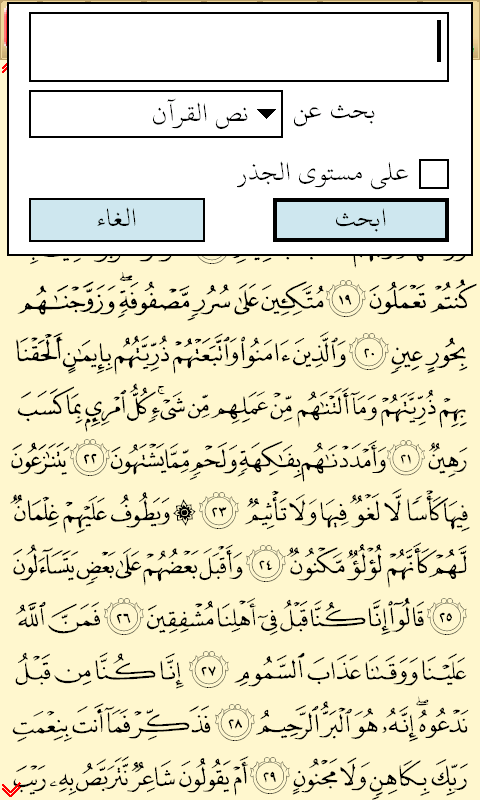 بحث عن نص القرآن
على مستوى الجذر
ابحث الغاء
كُنتُمْ تَعْمَلُونَ ١٩ مُتَّكِـِٔينَ عَلَىٰ سُرُرٍ مَّصْفُوفَةٍۖ وَزَوَّجْنَـٰهُم
بِحُورٍ عِينٍ ٢٠ وَٱلَّذِينَ ءَامَنُوا۟ وَٱتَّبَعَتْهُمْ ذُرِّيَّتُهُم بِإِيمَـٰنٍ أَلْحَقْنَا
بِهِمْ ذُرِّيَّتَهُمْ وَمَآ أَلَتْنَـٰهُم مِّنْ عَمَلِهِم مِّن شَىْءٍۚ كُلُّ ٱمْرِئٍۭ بِمَا كَسَبَ
رَهِينٌ ٢١ وَأَمْدَدْنَـٰهُم بِفَـٰكِهَةٍ وَلَحْمٍ مِّمَّا يَشْتَهُونَ ٢٢ يَتَنَـٰزَعُونَ
فِيهَا كَأْسًا لَّا لَغْوٌ فِيهَا وَلَا تَأْثِيمٌ ٢٣ ۞ وَيَطُوفُ عَلَيْهِمْ غِلْمَانٌ
لَّهُمْ كَأَنَّهُمْ لُؤْلُؤٌ مَّكْنُونٌ ٢٤ وَأَقْبَلَ بَعْضُهُمْ عَلَىٰ بَعْضٍ يَتَسَآءَلُونَ
٢٥ قَالُوٓا۟ إِنَّا كُنَّا قَبْلُ فِىٓ أَهْلِنَا مُشْفِقِينَ ٢٦ فَمَنَّ ٱللَّهُ
عَلَيْنَا وَوَقَىٰنَا عَذَابَ ٱلسَّمُومِ ٢٧ إِنَّا كُنَّا مِن قَبْلُ
نَدْعُوهُۖ إِنَّهُۥ هُوَ ٱلْبَرُّ ٱلرَّحِيمُ ٢٨ فَذَكِّرْ فَمَآ أَنتَ بِنِعْمَتِ
رَبِّكَ بِكَاهِنٍ وَلَا مَجْنُونٍ ٢٩ أَمْ يَقُولُونَ شَاعِرٌ نَّتَرَبَّصُ بِهِۦ رَيْبَ